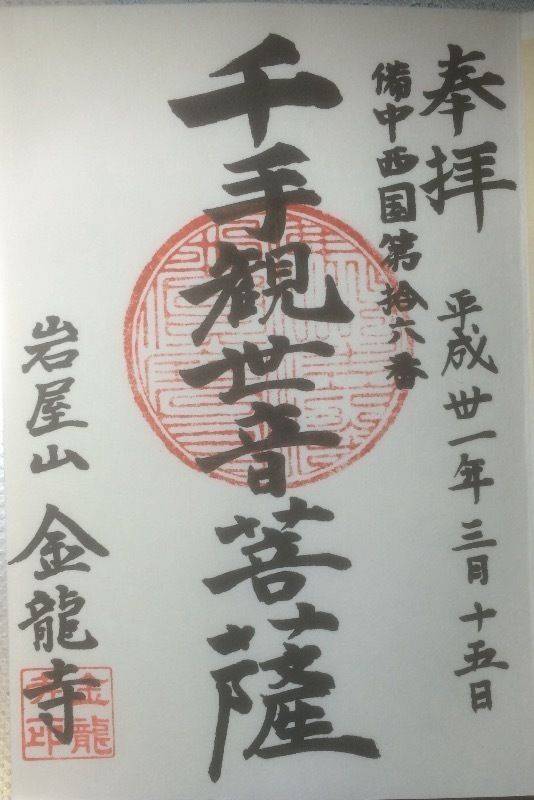 奉拝
平成卅一年三月十五日
備中西国第拾六番
千手観世音菩薩
岩屋山 金龍寺
金龍寺印